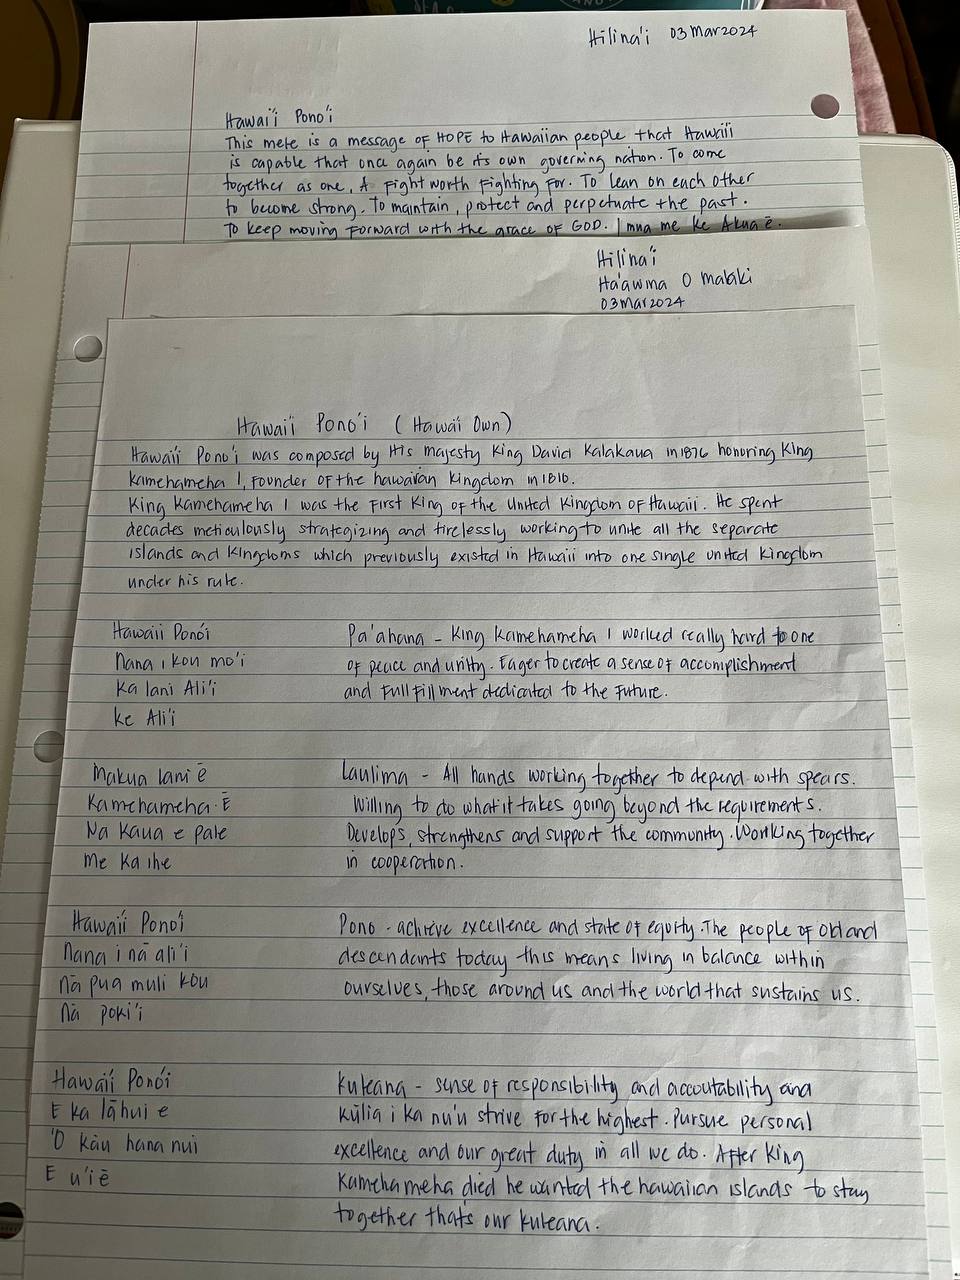 Hilina'i 03 Mar 2024
Hawai'i Pono'i
This mele is a message of HOPE to Hawaiian people that Hawaii
is capable that once again be its own governing nation. To come
together as one, A fight worth fighting for. To lean on each other
to become strong. To maintain, protect and perpetuate the past.
To keep moving forward with the grace of GOD. Imua me ke Akua ē.
Hilina'i
Ha'awina O malaki
03 Mar 2024
Hawai'i Pono'i (Hawai'i Own)
Hawai'i Pono'i was composed by His majesty King David Kalakaua in 1876 honoring King
Kamehameha I, founder of the hawaiian kingdom in 1810.
King Kamehameha I was the first King of the United Kingdom of Hawaii. He spent
decades meticulously strategizing and tirelessly working to unite all the separate
islands and Kingdoms which previously existed in Hawaii into one single united Kingdom
under his rule.
Hawaii Pono'i
nana i kou mo'i
ka lani Ali'i
ke Ali'i
Pa'ahana - King Kamehameha I worked really hard to one
of peace and unity. Eager to create a sense of accomplishment
and full fillment dedicated to the future.
Makua lani ē
Kamehameha Ē
Na Kaua e pale
me ka ihe
Laulima - All hands working together to depend with spears.
Willing to do what it takes going beyond the requirements.
Develops, strengthens and support the community. Working together
in cooperation.
Hawai'i Pono'i
nana i nā ali'i
nā pua muli kou
nā poki'i
Pono - achieve excellence and state of equity. The people of old and
descendants today this means living in balance within
ourselves, those around us and the world that sustains us.
Hawai'i Pono'i
E ka lāhui e
'O kāu hana nui
E u'i ē
Kuleana - sense of responsibility and accoutability and
kūlia i ka nu'u strive for the highest. Pursue personal
excellence and our great duty in all we do. After King
Kamehameha died he wanted the hawaiian islands to stay
together that's our kuleana.